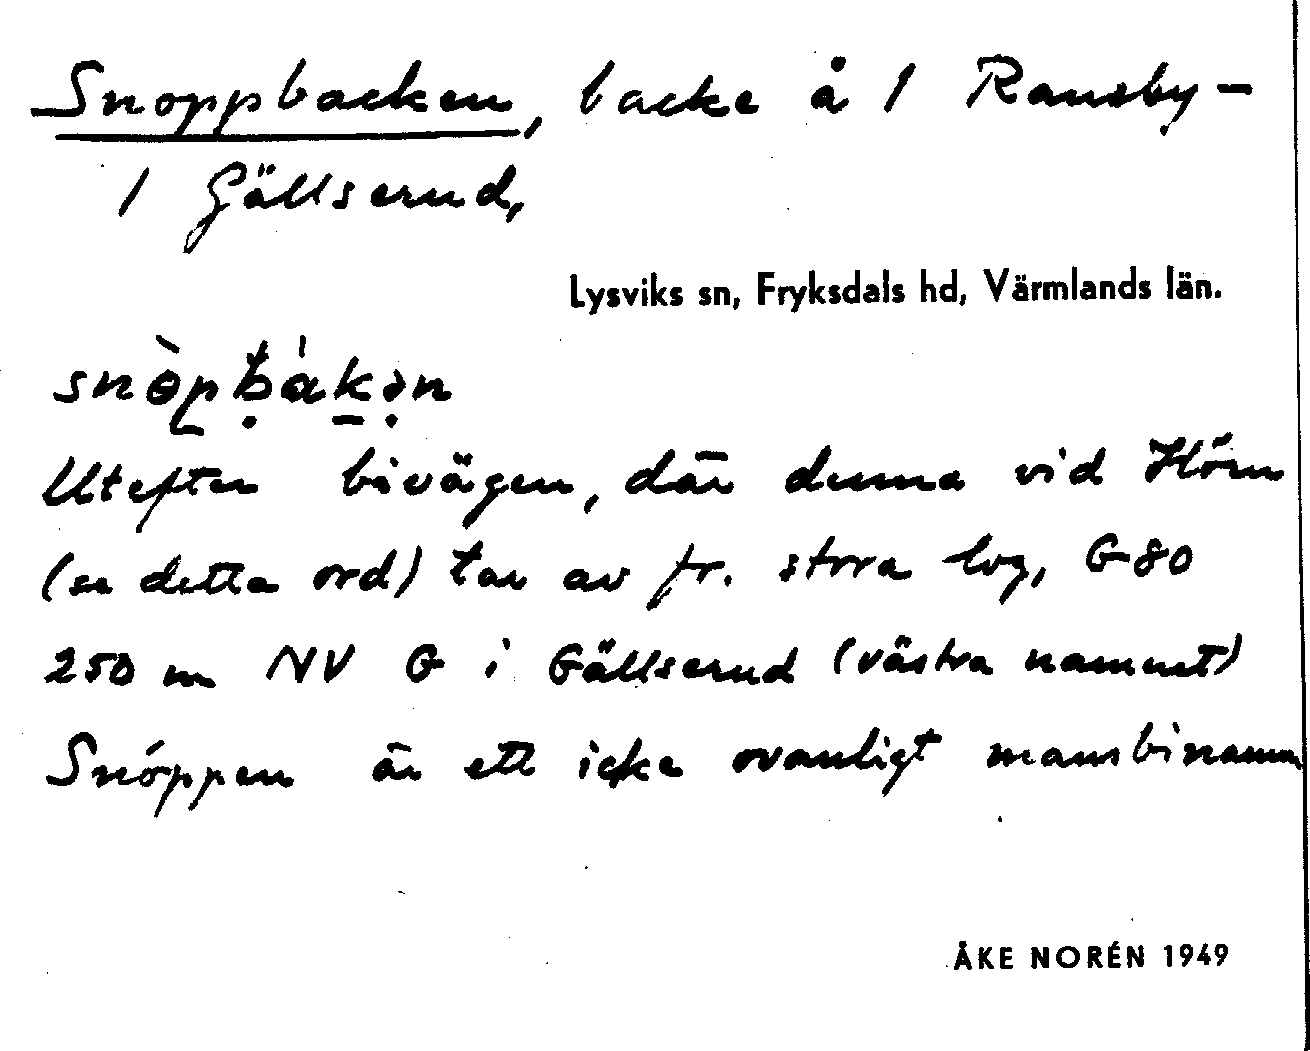 Snoppbacken, backe å 1 Ransby-
1 Gällserud,
Lysviks sn, Fryksdals hd, Värmlands län.
Utefter bivägen, där denna vid Hörn
(se detta ord) tar av fr. stora lvg, G 80
250 m NV G i Gällserud (västra namnet)
Snóppen är ett icke ovanligt mansbinamn
ÅKE NORÉN 1949